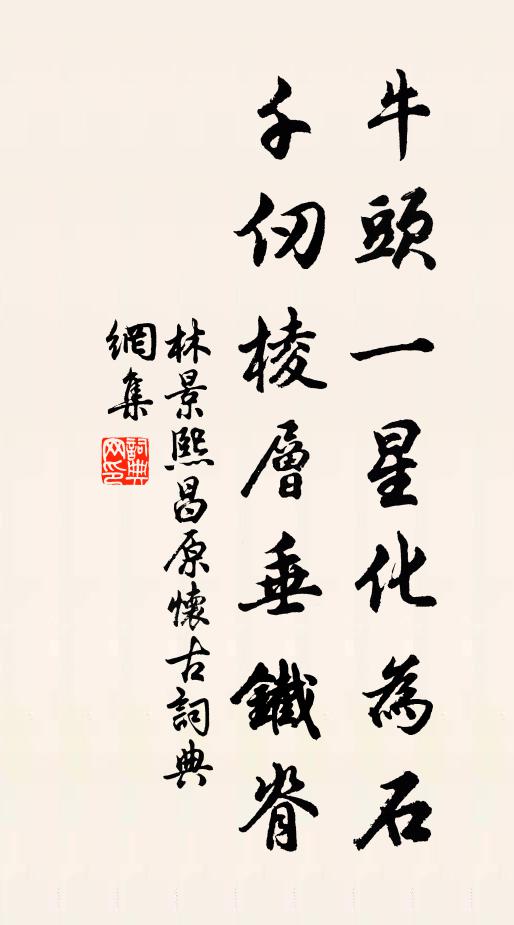 牛頭一星化為石
千仞棱層垂鐵脊
林景熙昌原懷古詞典
網集
詞典網印